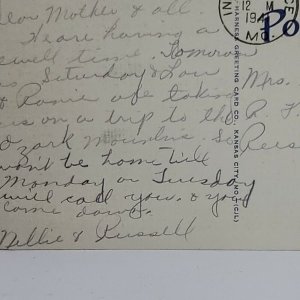 Dear Mother & all
I are having a
swell time. Tomorow
Saturday & Low
& Ronie are taking
us on a trip to the
Ozark Mountins. So
won't be home till
Monday or Tuesday
will call you. & you
come down.
Nellie & Russell
12 M
194
MO
Po
Mrs.
R. F.
HARNESS GREETING CARD CO. KANSAS CITY, MO. (C/L)